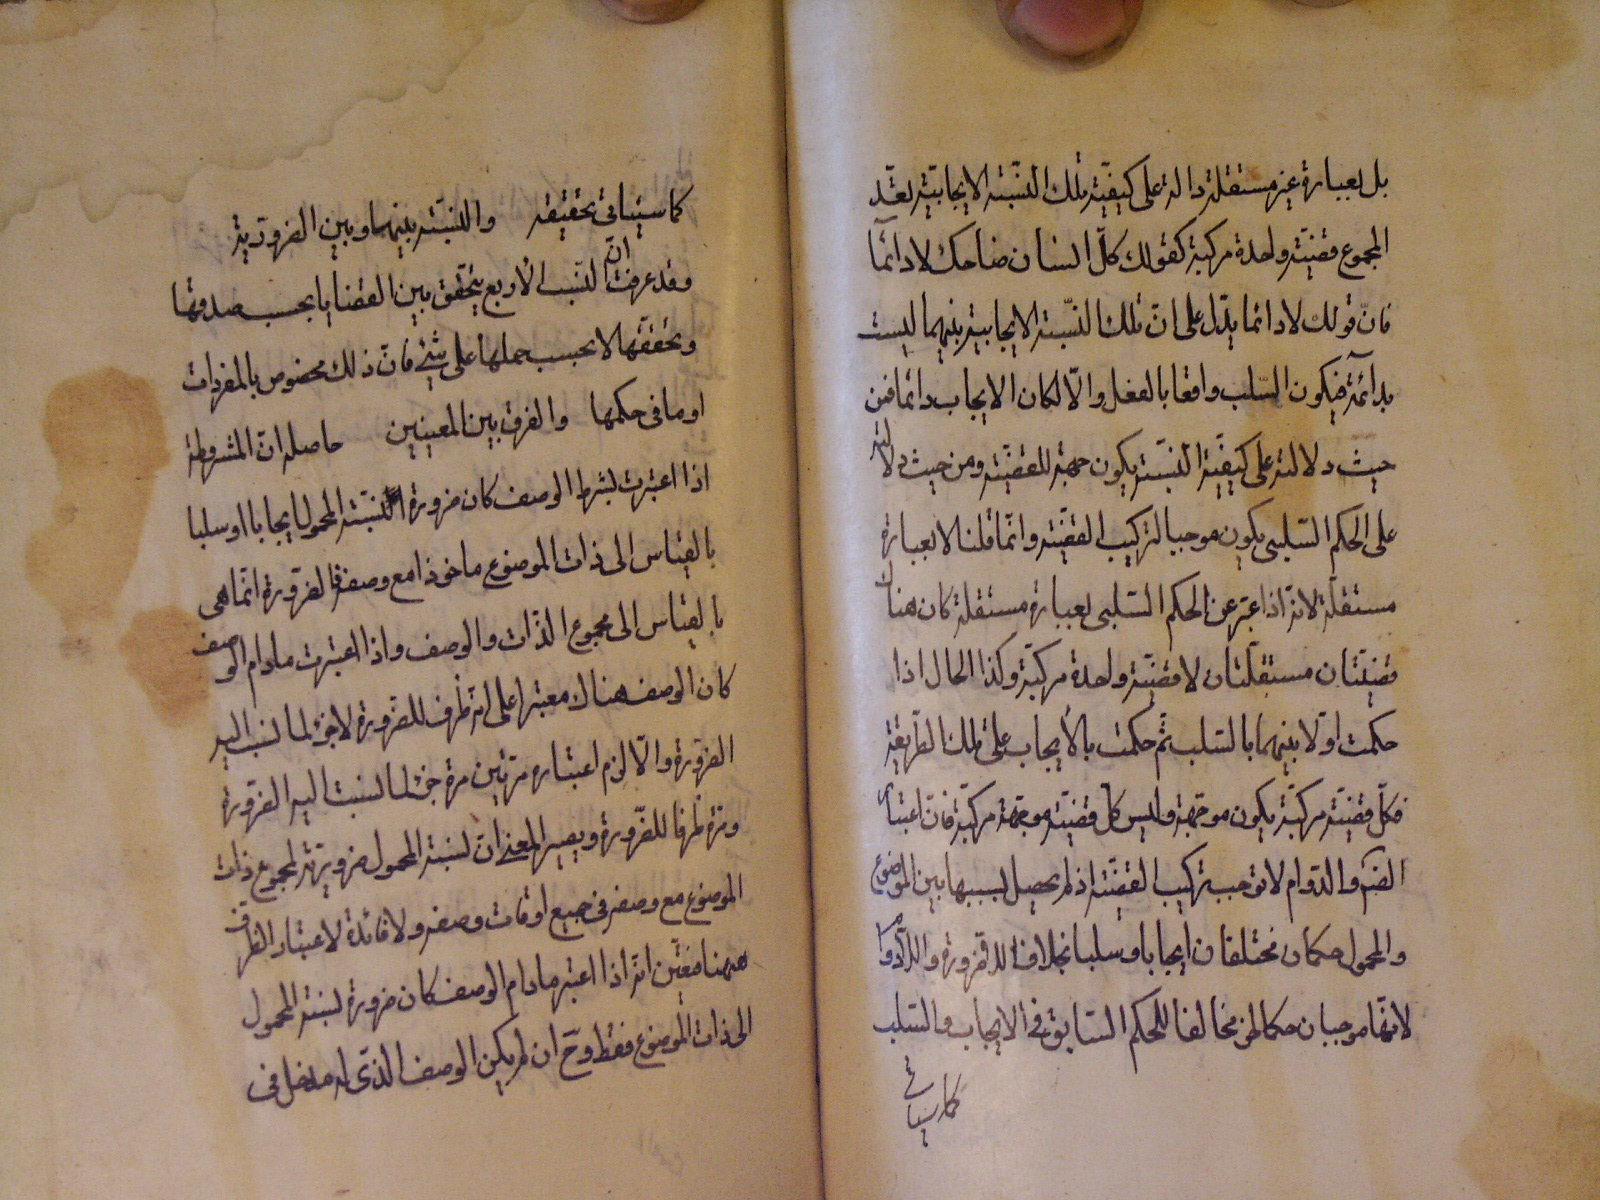 بل بعبارة غير مستقلة دالة على كيفية تلك النسبة الايجابية يعدّ
المجموع قضيّة واحدة مركبة كقولك كلّ انسان ضاحك لا دائمآ
فانّ قولك لا دائما يدلّ على انّ تلك النسبة الايجابية بينهما ليست
بدائمة فيكون السّلب واقعا بالفعل والّا لكان الايجاب دائما فمن
حيث دلالته على كيفيّة النسبّة يكون جهة للقضيّة ومن حيث دلالته
على الحكم السّلبى يكون موجبا لتركيب القضيّة وانّما قلنا لا بعبارة
مستقلّة لانّه اذا عبّر عن الحكم السّلبى بعبارة مستقلة كان هناك
قضيّتان مستقلّتان لا قضيّة واحدة مركبّة وكذا الحال اذا
حكمت اوّلا بينهما بالسّلب ثمّ حكمت بالأيجاب على تلك الطّريقة
فكلّ قضيّة مركبّة يكون موجّهة وليس كلّ قضيّة موجّهة مركبّة فانّ اعتبار
الضّرورة والدّوام لا توجب تركيب القضيّة اذ لم يحصل بسببها بين الموضوع
والمحمول حكمان مختلفان ايجابا وسلبا بخلاف اللاضرورة واللّادوام
لانّهما موجبان حكما اخر مخالفا للحكم السّابق فى الايجاب والسّلب
كما سيأتى
كما سيأتى تحقيقه والنسبّة بينهما وبين الضروريّة
وقد عرفت انّ النّسب الأربع يتحقّق بين القضايا بحسب صدقها
وتحقّقها لا بحسب حملها على شئ فانّ ذلك مخصوص بالمفردات
او ما فى حكمها والفرق بين المعنيين حاصله انّ المشروطة
اذا اعتبرت بشرط الوصف كان ضرورة نسبّة المحمول ايجابا او سلبا
بالقياس الى ذات الموضوع ماخوذا مع وصفه فالضّرورة انّما هى
بالقياس الى مجموع الذّات والوصف واذا اعتبرت مادام الوصف
كان الوصف هناك معتبرا على انّه ظرف للضّرورة لا جزء لما نسب اليه
الضّرورة والّا لزم اعتباره مرّتين مرة جزء لما نسبت اليه الضّرورة
ومرّة ظرفا للضّرورة ويصير المعنى انّ نسبة المحمول ضروريّة لمجموع ذات
الموضوع مع وصفه فى جميع اوقات وصفه ولا فائدة لاعتبار الظرف
ههنا فتعيّن انّه اذا اعتبر مادام الوصف كان ضرورة نسبة المحمول
الى ذات الموضوع فقط وحّ ان لم يكن الوصف الذّى له مدخل فى